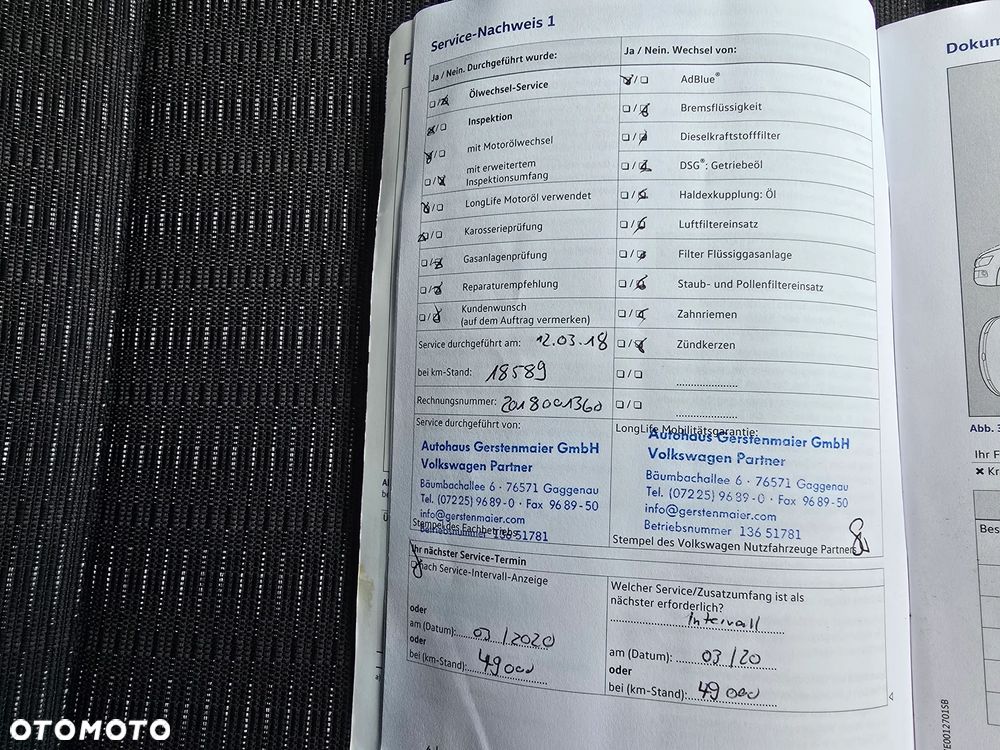 Service-Nachweis 1
Ja / Nein. Durchgeführt wurde:
Ölwechsel-Service
Inspektion
mit Motorölwechsel
mit erweitertem
Inspektionsumfang
LongLife Motoröl verwendet
Karosserieprüfung
Gasanlagenprüfung
Reparaturempfehlung
Kundenwunsch
(auf dem Auftrag vermerken)
Service durchgeführt am: 12.03.18
bei km-Stand: 18589
Rechnungsnummer: 2018001360
Service durchgeführt von:
Autohaus Gerstenmaier GmbH
Volkswagen Partner
Bäumbachallee 6 · 76571 Gaggenau
Tel. (07225) 96 89-0 · Fax 96 89-50
info@gerstenmaier.com
Betriebsnummer 136 51781
Stempel des Fachbetriebs
Ja / Nein. Wechsel von:
AdBlue®
Bremsflüssigkeit
Dieselkraftstofffilter
DSG®: Getriebeöl
Haldexkupplung: Öl
Luftfiltereinsatz
Filter Flüssiggasanlage
Staub- und Pollenfiltereinsatz
Zahnriemen
Zündkerzen
LongLife Mobilitätsgarantie:
Autohaus Gerstenmaier GmbH
Volkswagen Partner
Bäumbachallee 6 · 76571 Gaggenau
Tel. (07225) 96 89-0 · Fax 96 89-50
info@gerstenmaier.com
Betriebsnummer 136 51781
Stempel des Volkswagen Nutzfahrzeuge Partners
Ihr nächster Service-Termin
nach Service-Intervall-Anzeige
oder
am (Datum): 03/2020
oder
bei (km-Stand): 49000
Welcher Service/Zusatzumfang ist als
nächster erforderlich?
Intervall
am (Datum): 03/20
oder
bei (km-Stand): 49000
Dokum
Abb. 3
Ihr F
Kr
Bes
E0012701SB
OTOMOTO